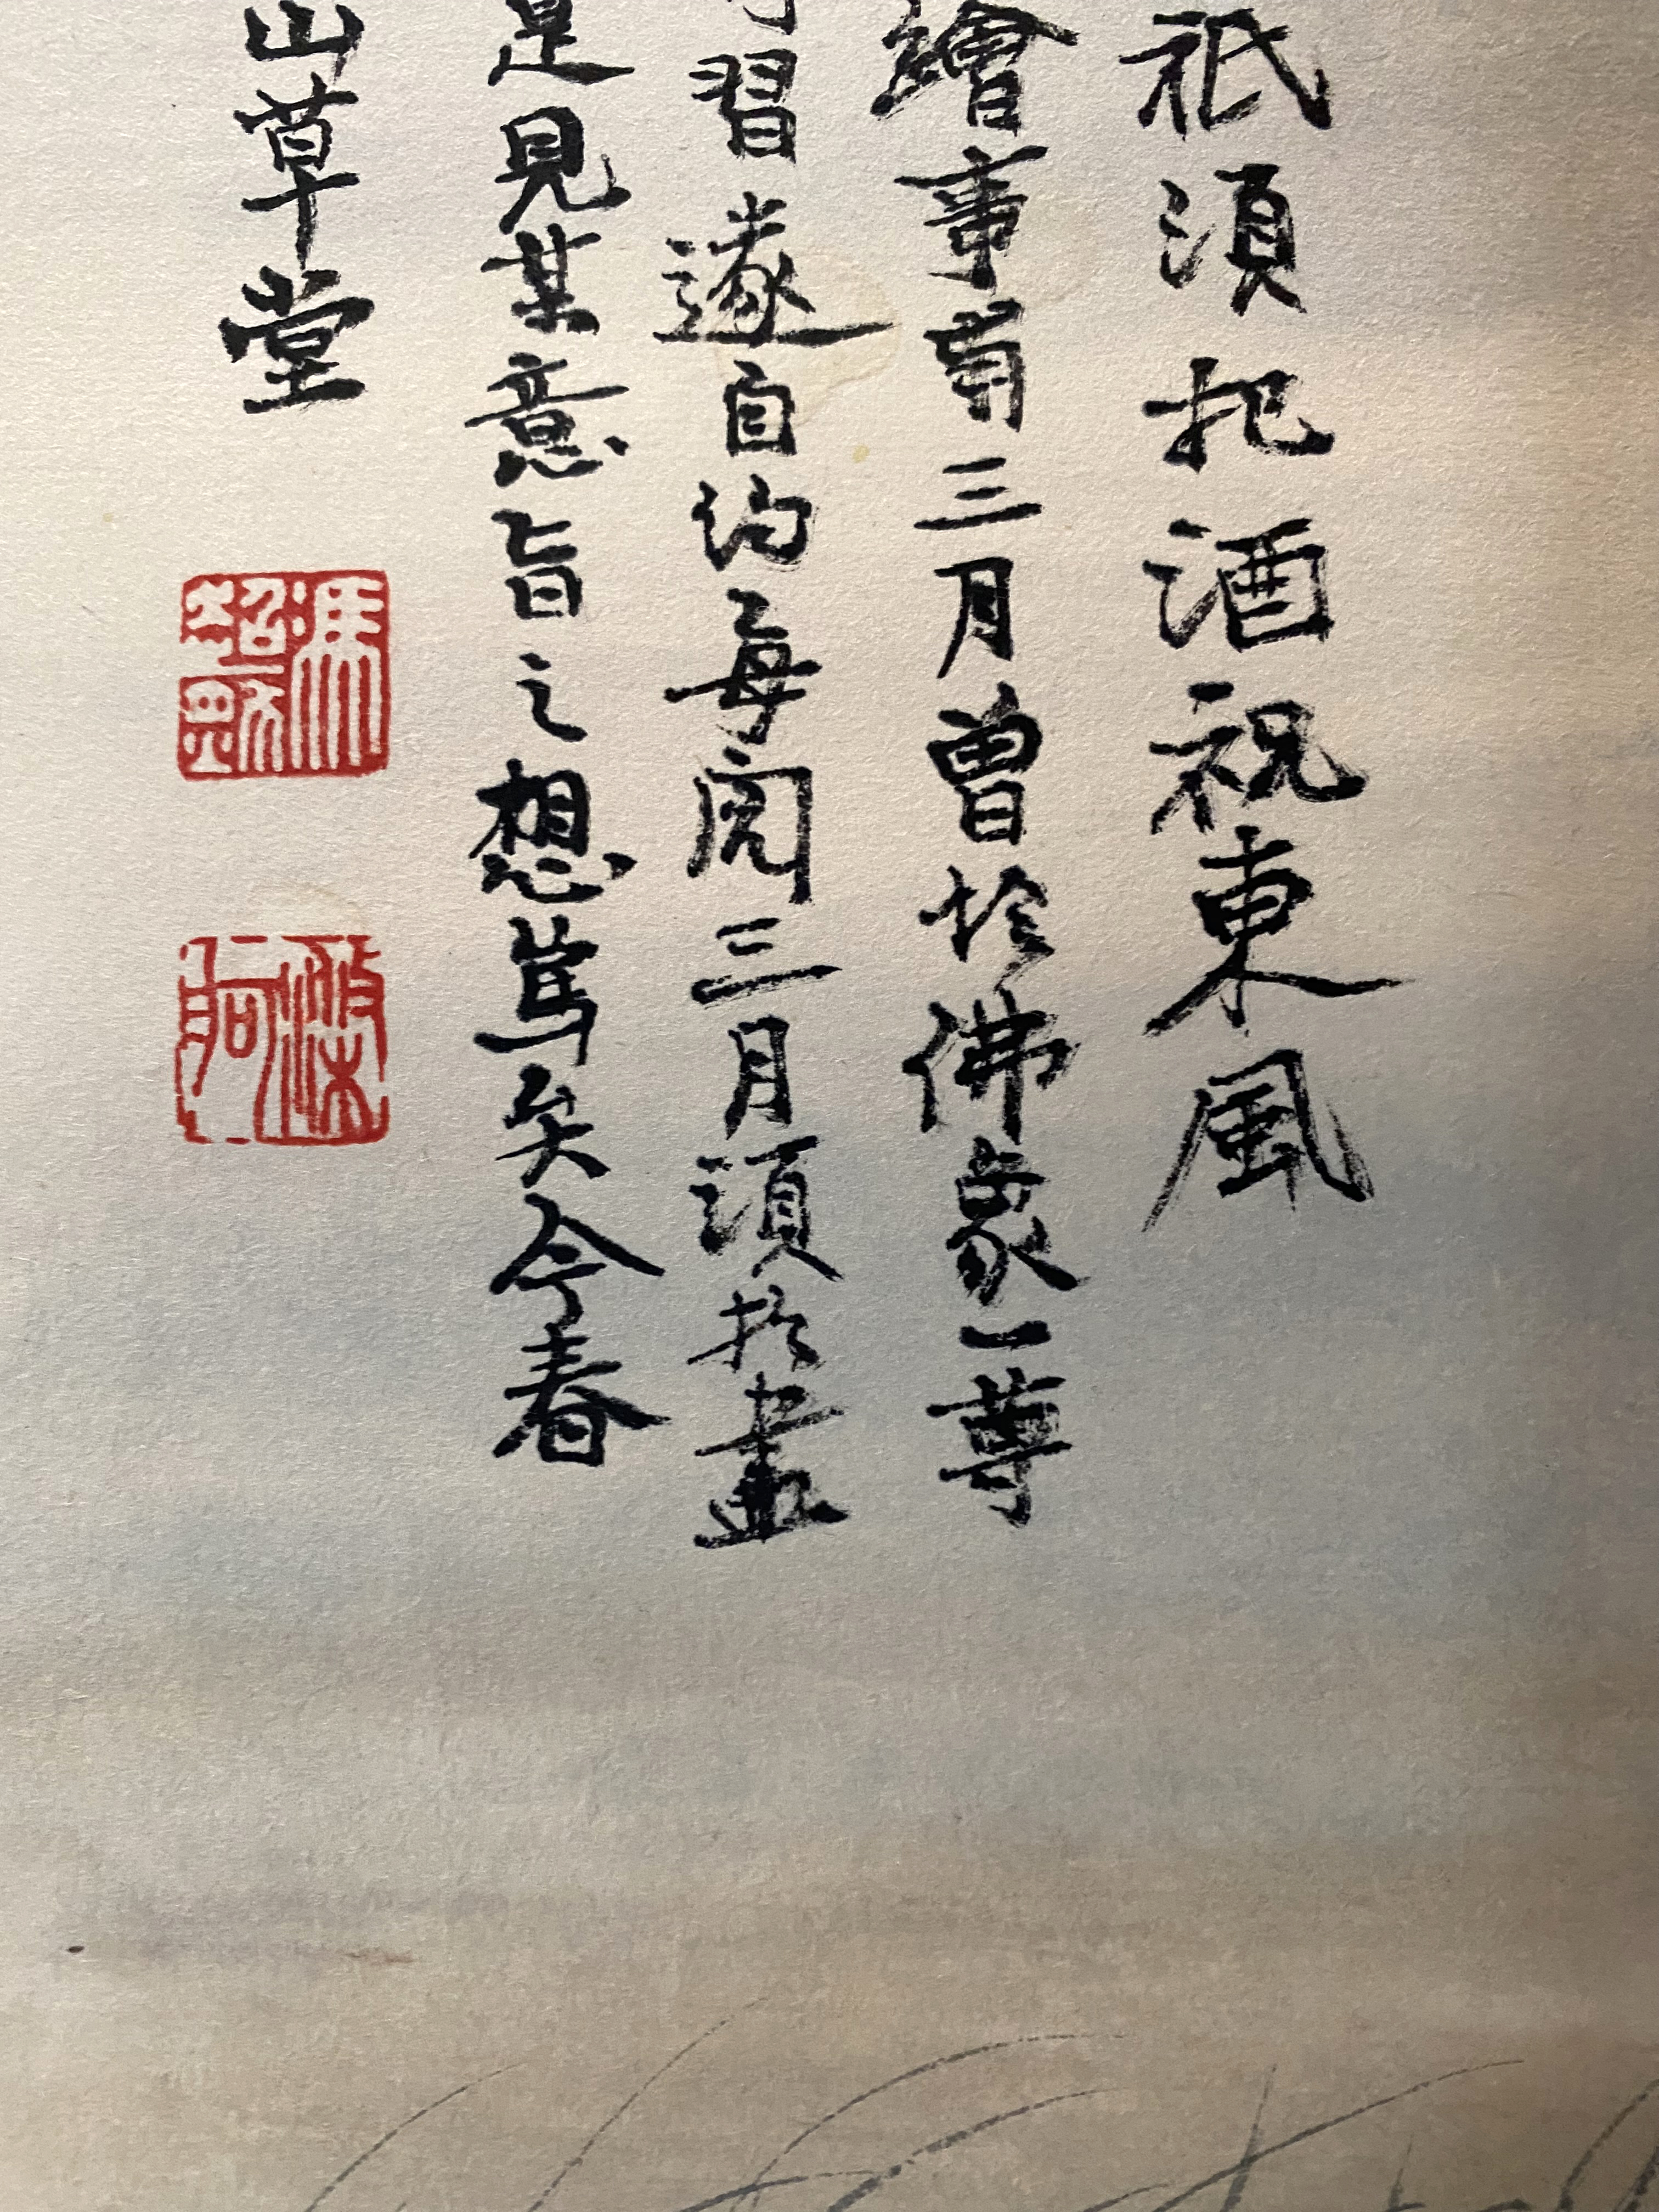 祇須把酒祝東風
繪事三月曾於佛象一尊
習遂自約每閱三月須於畫
是見某意旨之想篤矣今春
山草堂
馮超然
滌舸